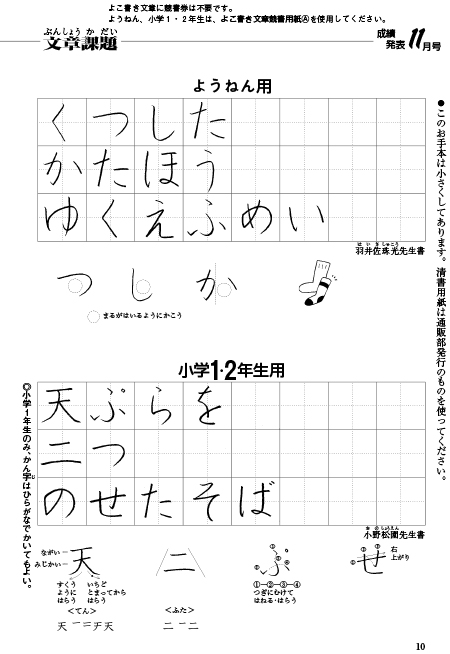 よこ書き文章に競書券は不要です。
ようねん、小学1・2年生は、よこ書き文章競書用紙Ⓐを使用してください。
ぶんしょうかだい
文章課題
成績発表 11月号
ようねん用
くつした
かたほう
ゆくえふめい
羽井佐珠光先生書
はいさしゅこう
つ し か
まるがはいるようにかこう
●このお手本は小さくしてあります。清書用紙は通販部発行のものを使ってください。
小学1・2年生用
天ぷらを
二つ
のせたそば
おのしょうえん
小野松園先生書
◎小学1年生のみ、かん字はひらがなでかいてもよい。
天 二 ぷ せ
ながい
みじかい
すくうようにはらう
いちどとまってからはらう
①―②―③―④
つぎにむけてはねる・はらう
① ② ③
右上がり
<てん>
天 一 二 チ 天
<ふた>
二 一 二
10